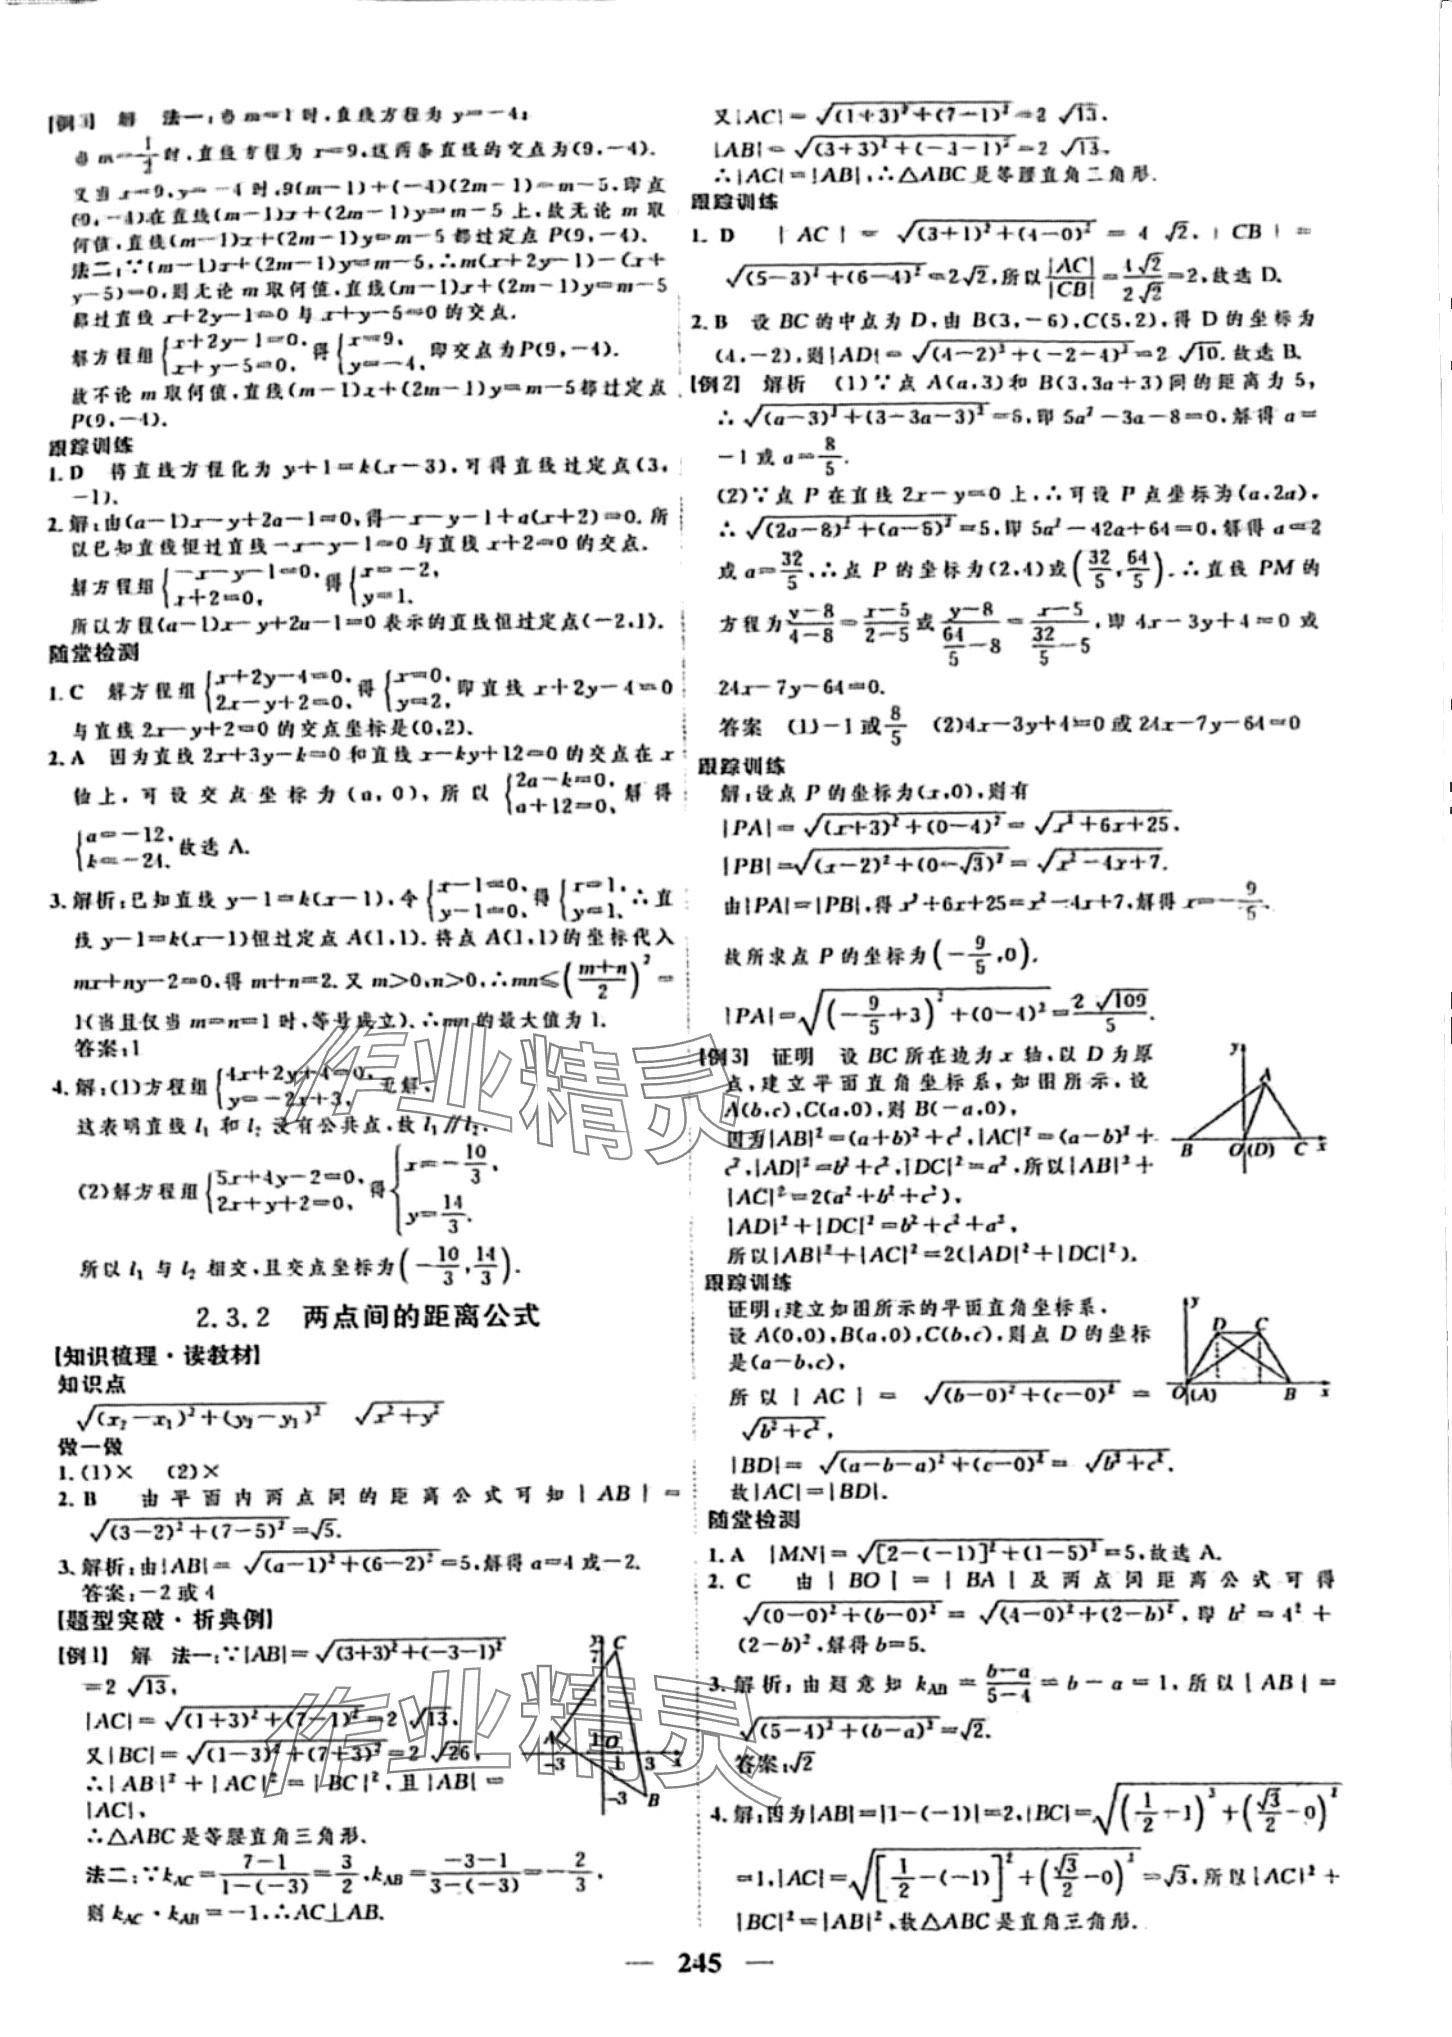 [例3] 解 法一:当m=1时,直线方程为y=-4;
当m=1/2时,直线方程为x=9,这两条直线的交点为(9,-4).
又当x=9,y=-4时,9(m-1)+(-4)(2m-1)=m-5,即点
(9,-4)在直线(m-1)x+(2m-1)y=m-5上,故无论m取
何值,直线(m-1)x+(2m-1)y=m-5都过定点P(9,-4).
法二:∵(m-1)x+(2m-1)y=m-5,∴m(x+2y-1)-(x+
y-5)=0,则无论m取何值,直线(m-1)x+(2m-1)y=m-5
都过直线x+2y-1=0与x+y-5=0的交点.
解方程组{x+2y-1=0, x+y-5=0, 得{x=9, y=-4, 即交点为P(9,-4).
故不论m取何值,直线(m-1)x+(2m-1)y=m-5都过定点
P(9,-4).
跟踪训练
1. D 将直线方程化为y+1=k(x-3),可得直线过定点(3,
-1).
2. 解:由(a-1)x-y+2a-1=0,得-x-y-1+a(x+2)=0.所
以已知直线恒过直线-x-y-1=0与直线x+2=0的交点.
解方程组{-x-y-1=0, x+2=0, 得{x=-2, y=1.
所以方程(a-1)x-y+2a-1=0表示的直线恒过定点(-2,1).
随堂检测
1. C 解方程组{x+2y-4=0, 2x-y+2=0, 得{x=0, y=2, 即直线x+2y-4=0
与直线2x-y+2=0的交点坐标是(0,2).
2. A 因为直线2x+3y-k=0和直线x-ky+12=0的交点在x
轴上,可设交点坐标为(a,0),所以{2a-k=0, a+12=0, 解得
{a=-12, k=-24. 故选A.
3. 解析:已知直线y-1=k(x-1),令{x-1=0, y-1=0, 得{x=1, y=1. ∴直
线y-1=k(x-1)恒过定点A(1,1).将点A(1,1)的坐标代入
mx+ny-2=0,得m+n=2.又m>0,n>0,∴mn≤((m+n)/2)²=
1(当且仅当m=n=1时,等号成立).∴mn的最大值为1.
答案:1
4. 解:(1)方程组{4x+2y+4=0, y=-2x+3, 无解,
这表明直线l₁和l₂没有公共点,故l₁∥l₂.
(2)解方程组{5x+4y-2=0, 2x+y+2=0, 得{x=-10/3, y=14/3.
所以l₁与l₂相交,且交点坐标为(-10/3,14/3).
2.3.2 两点间的距离公式
[知识梳理·读教材]
知识点
√((x₂-x₁)²+(y₂-y₁)²) √(x²+y²)
做一做
1. (1)× (2)×
2. B 由平面内两点间的距离公式可知|AB|=
√((3-2)²+(7-5)²)=√5.
3. 解析:由|AB|=√((a-1)²+(6-2)²)=5,解得a=4或-2.
答案:-2或4
[题型突破·析典例]
[例1] 解 法一:∵|AB|=√((3+3)²+(-3-1)²)
=2√13,
|AC|=√((1+3)²+(7-1)²)=2√13,
又|BC|=√((1-3)²+(7+3)²)=2√26,
∴|AB|²+|AC|²=|BC|²,且|AB|=
|AC|,
∴△ABC是等腰直角三角形.
法二:∵k_AC=(7-1)/(1-(-3))=3/2,k_AB=(-3-1)/(3-(-3))=-2/3,
则k_AC·k_AB=-1,∴AC⊥AB.
y
7
C
A
1
O
-3
1
3
x
-3
B
又|AC|=√((1+3)²+(7-1)²)=2√13,
|AB|=√((3+3)²+(-3-1)²)=2√13,
∴|AC|=|AB|,∴△ABC是等腰直角三角形.
跟踪训练
1. D |AC|=√((3+1)²+(4-0)²)=4√2,|CB|=
√((5-3)²+(6-4)²)=2√2,所以|AC|/|CB|=4√2/2√2=2,故选D.
2. B 设BC的中点为D,由B(3,-6),C(5,2),得D的坐标为
(4,-2),则|AD|=√((4-2)²+(-2-4)²)=2√10.故选B.
[例2] 解析 (1)∵点A(a,3)和B(3,3a+3)间的距离为5,
∴√((a-3)²+(3-3a-3)²)=5,即5a²-3a-8=0,解得a=
-1或a=8/5.
(2)∵点P在直线2x-y=0上,∴可设P点坐标为(a,2a),
∴√((2a-8)²+(a-5)²)=5,即5a²-42a+64=0,解得a=2
或a=32/5,∴点P的坐标为(2,4)或(32/5,64/5).∴直线PM的
方程为(y-8)/(4-8)=(x-5)/(2-5)或(y-8)/(64/5-8)=(x-5)/(32/5-5),即4x-3y+4=0或
24x-7y-64=0.
答案 (1)-1或8/5 (2)4x-3y+4=0或24x-7y-64=0
跟踪训练
解:设点P的坐标为(x,0),则有
|PA|=√((x+3)²+(0-4)²)=√(x²+6x+25),
|PB|=√((x-2)²+(0-√3)²)=√(x²-4x+7).
由|PA|=|PB|,得x²+6x+25=x²-4x+7,解得x=-9/5.
故所求点P的坐标为(-9/5,0).
|PA|=√((-9/5+3)²+(0-4)²)=2√109/5.
[例3] 证明 设BC所在边为x轴,以D为原
点,建立平面直角坐标系,如图所示,设
A(b,c),C(a,0),则B(-a,0),
因为|AB|²=(a+b)²+c²,|AC|²=(a-b)²+
c²,|AD|²=b²+c²,|DC|²=a²,所以|AB|²+
|AC|²=2(a²+b²+c²),
|AD|²+|DC|²=b²+c²+a²,
所以|AB|²+|AC|²=2(|AD|²+|DC|²).
y
A
B
O(D)
C
x
跟踪训练
证明:建立如图所示的平面直角坐标系,
设A(0,0),B(a,0),C(b,c),则点D的坐标
是(a-b,c),
所以|AC|=√((b-0)²+(c-0)²)=
√(b²+c²),
|BD|=√((a-b-a)²+(c-0)²)=√(b²+c²).
故|AC|=|BD|.
y
D
C
O(A)
B
x
随堂检测
1. A |MN|=√([2-(-1)]²+(1-5)²)=5,故选A.
2. C 由|BO|=|BA|及两点间距离公式可得
√((0-0)²+(b-0)²)=√((4-0)²+(2-b)²),即b²=4²+
(2-b)²,解得b=5.
3. 解析:由题意知k_AB=(b-a)/(5-4)=b-a=1,所以|AB|=
√((5-4)²+(b-a)²)=√2.
答案:√2
4. 解:因为|AB|=|1-(-1)|=2,|BC|=√((1/2-1)²+(√3/2-0)²)
=1,|AC|=√([1/2-(-1)]²+(√3/2-0)²)=√3,所以|AC|²+
|BC|²=|AB|²,故△ABC是直角三角形.
— 245 —
作业精灵
作业精灵